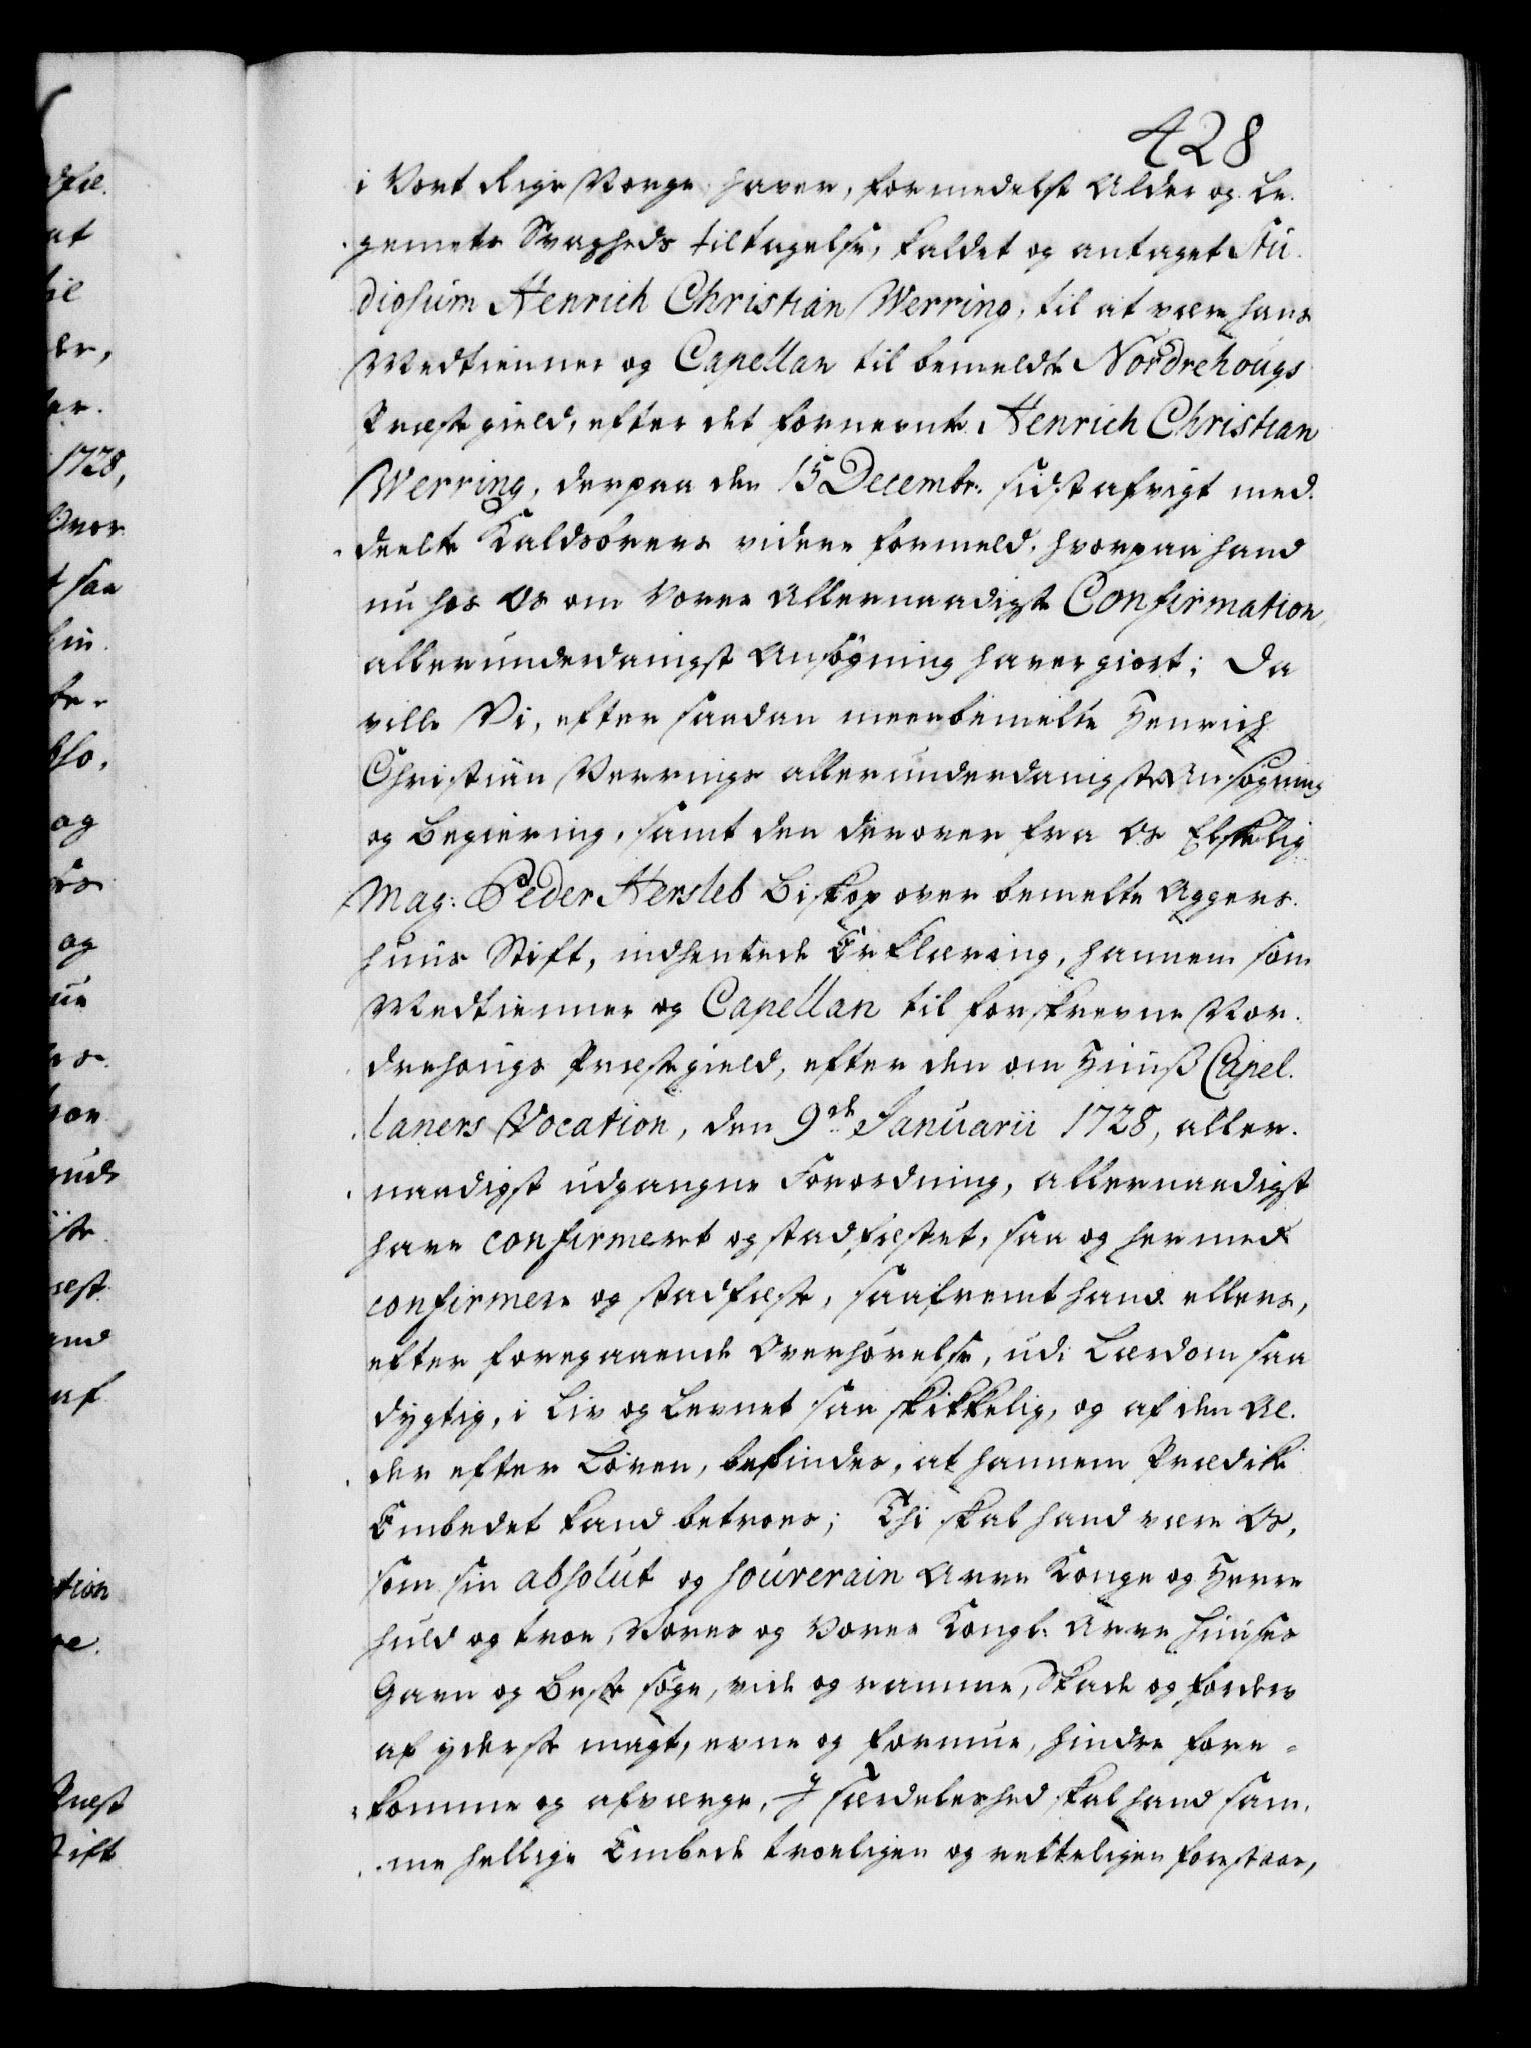 428
i Vort Rige Norge, haver, formedelst Alder og Le¬
gemets Svagheds tiltagelse, kaldet og antaget Stu¬
diosum Henrich Christian Werring, til at være hans
Medtienner og Capellan til bemeldte Nordrehougs
Præstegield, efter det fornevnte Henrich Christian
Werring, derpaa den 15 Decembr: sidst afvigt med¬
deelte Kaldsbrevs videre formeld, hvorpaa hand
nu hos Os om Vores Allernaadigste Confirmation,
allerunderdanigst Ansøgning haver giort; Da
ville Vi, efter saadan meerbemelte Henrich
Christian Verrings allerunderdanigste Ansøgning
og Begiering, samt den derover fra Os Elskelig
Mag: Peder Hersleb Biskop over bemelte Aggers¬
huus Stift, indhentede Erklæring, hannem som
Medtienner og Capellan til forskrevne Nor¬
drehougs Præstegield, efter den om Huuß Capel¬
laners Vocation, den 9de Januarii 1728, aller¬
naadigst udgangne Forordning, allernaadigst
have confirmeret og stadfæstet, saa og hermed
confirmere og stadfæste, saafremt hand ellers,
efter foregaaende Overhørelse, udi Lærdom saa
dygtig, i Liv og Levnet saa skikkelig, og af den Al¬
der efter Loven, befindes, at hannem Prædike
Embedet kand betroes; Thi skal hand være Os,
som sin absolut og souverain Arve Konge og Herre
huld og troe, Vores og Vores Kongl: Arve Huuses
Gavn og Beste søge, viide og ramme, Skade og forderv
af yderste magt, evne og formue, hindre fore¬
komme og afverge, J særdeleshed skal hand sam¬
me hellige Embede troeligen og retteligen forestaae,